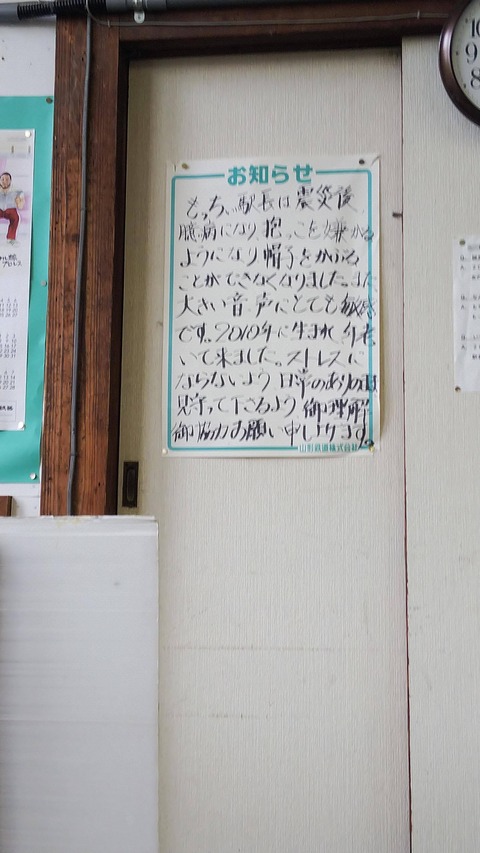 お知らせ
もっちぃ駅長は震災後、
臆病になり抱っこを嫌がる
ようになり帽子をかぶる
ことができなくなりました。また
大きい音、声にとても敏感
です。2010年に生まれ、年老
いて来ました。ストレスに
ならないよう日常のありのまま
見守って下さるよう御理解
御協力お願い申し上げます。
山形鉄道株式会社
プロレス
10
9
8